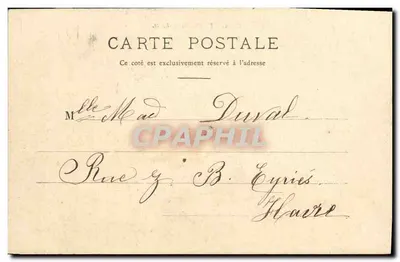 CARTE POSTALE
Ce coté est exclusivement réservé à l'adresse
Mlle Mad Duval
CPAPHIL
Rue J. B. Eyriès
Havre